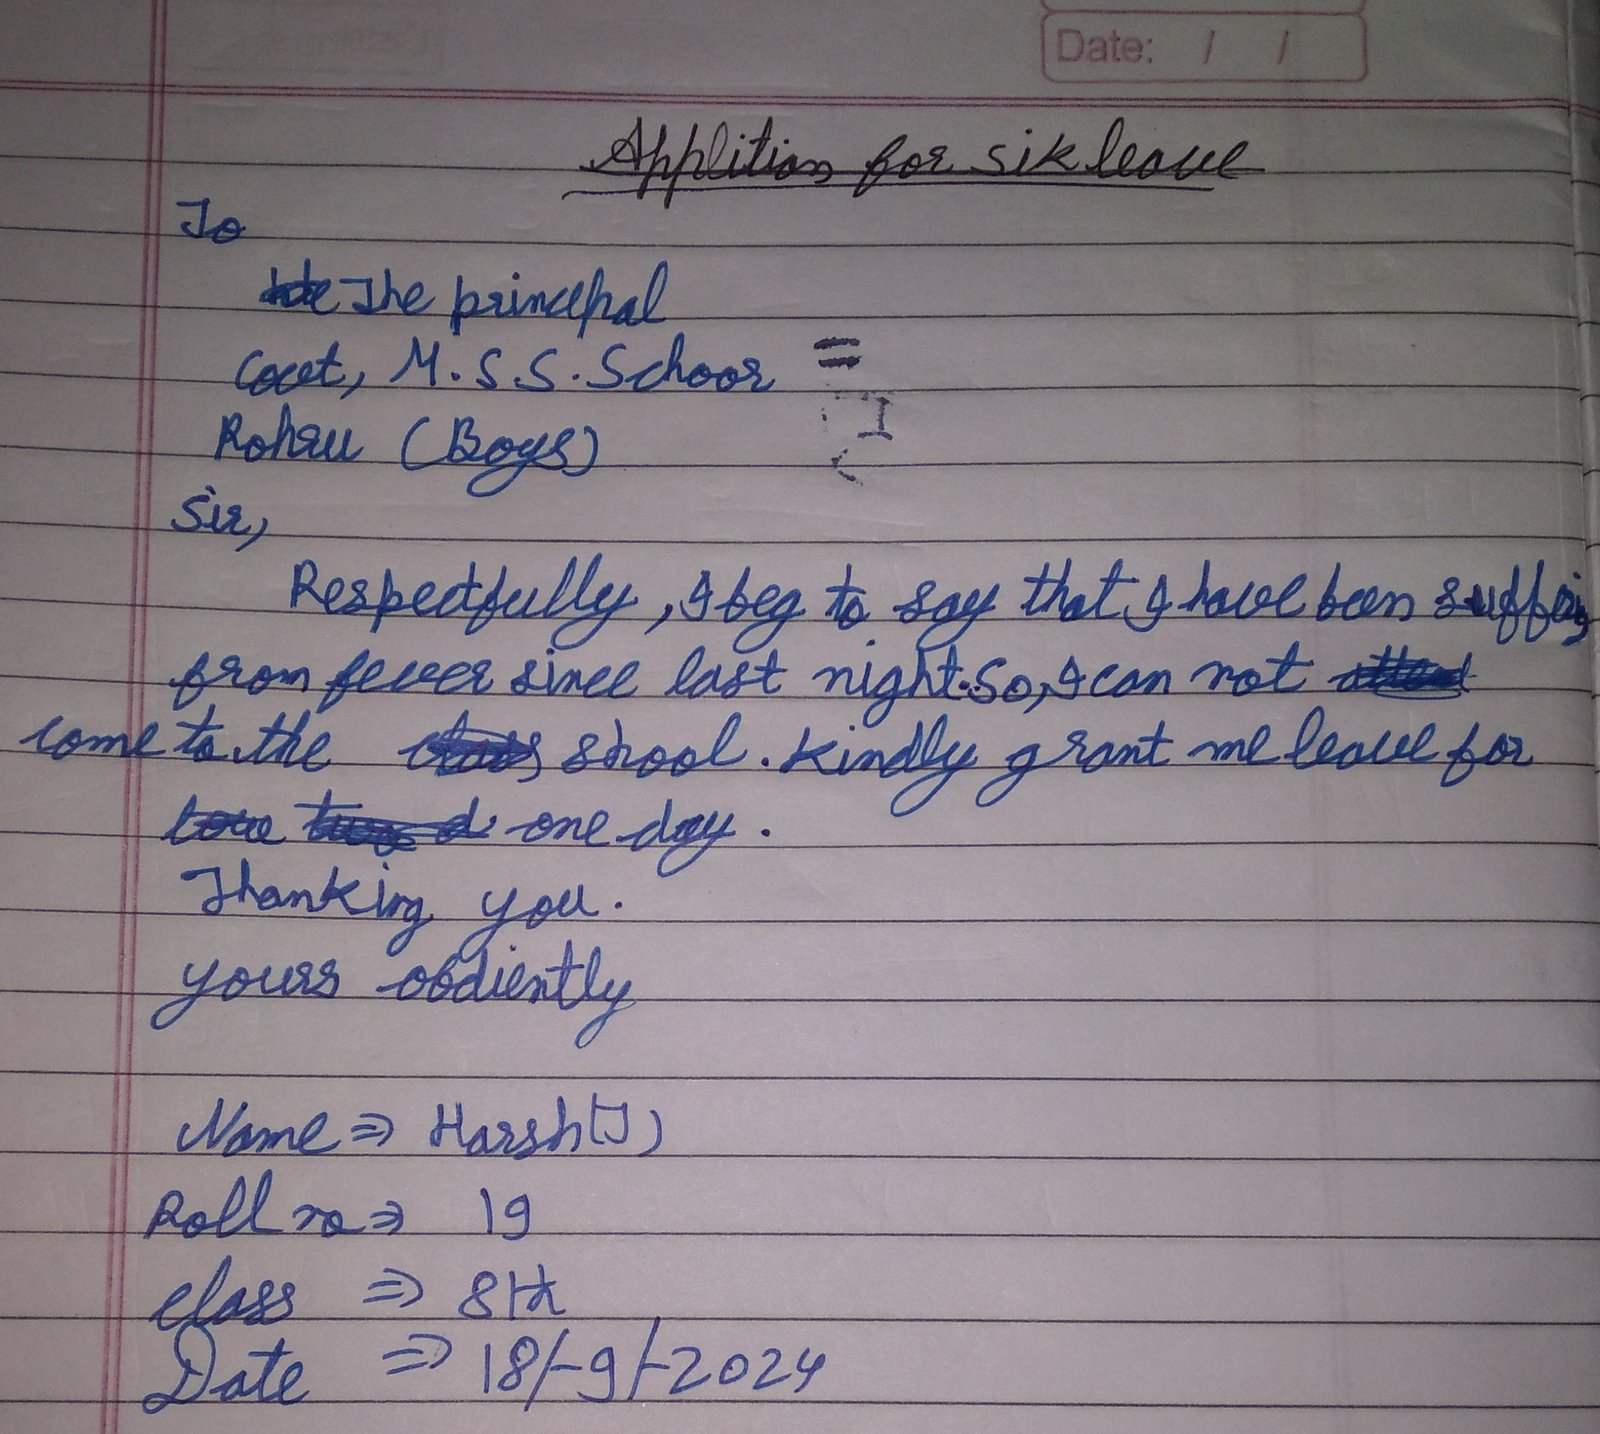 Date: / /
Applition for sik leave
To
The principal
Govt, M.S.S. School
(Boys)
Sir,
Respectfully, I beg to say that I have been suffring
from fever since last night. So, I can not
come to the shool. Kindly grant me leave for
one day.
Thanking you.
yours obdiently
Name ⇒ Harsh(J)
Roll no ⇒ 19
class ⇒ 8th
Date ⇒ 18/-9/-2024